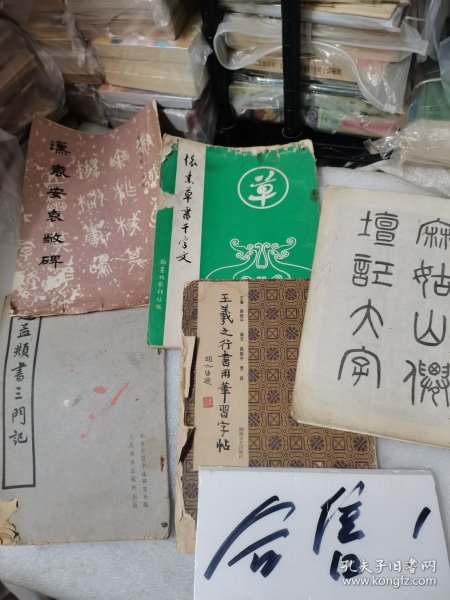 漢袁安袁敞碑
懷素草書千字文
草
麻姑山僊
壇記大字
趙孟頫書三門記
人民美術出版社出版
王羲之行書用筆習字帖
合售
孔夫子旧书网
www.kongfz.com